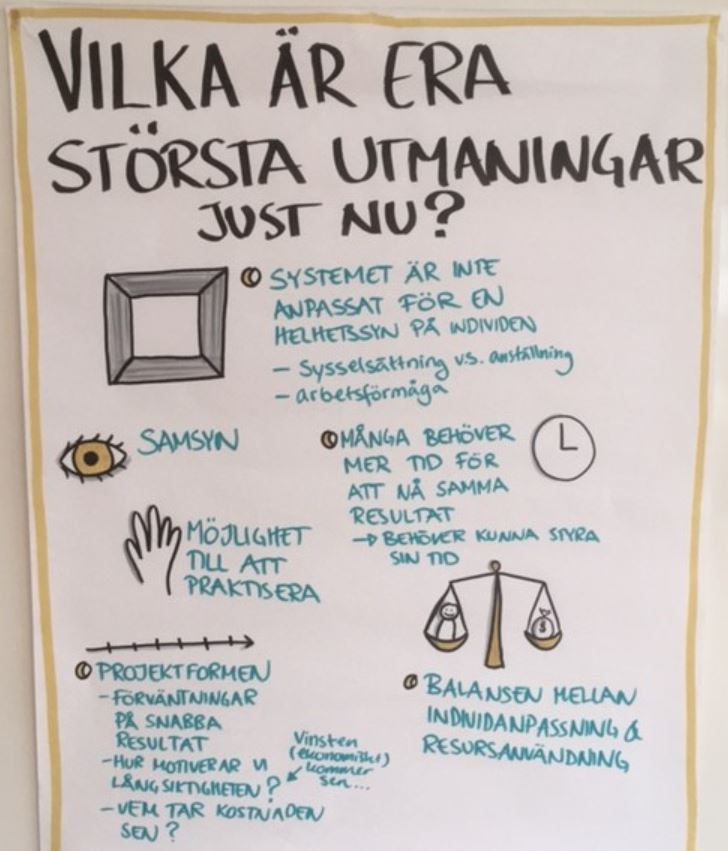 VILKA ÄR ERA
STÖRSTA UTMANINGAR
JUST NU?
SYSTEMET ÄR INTE
ANPASSAT FÖR EN
HELHETSSYN PÅ INDIVIDEN
- Sysselsättning v.s. anställning
- arbetsförmåga
SAMSYN
MÅNGA BEHÖVER
MER TID FÖR
ATT NÅ SAMMA
RESULTAT
→ BEHÖVER KUNNA STYRA
SIN TID
MÖJLIGHET
TILL ATT
PRAKTISERA
PROJEKTFORMEN
- FÖRVÄNTNINGAR
PÅ SNABBA
RESULTAT
- HUR MOTIVERAR VI
LÅNGSIKTIGHETEN?
- VEM TAR KOSTNADEN
SEN?
Vinsten
(ekonomiskt)
kommer
sen...
$
BALANSEN MELLAN
INDIVIDANPASSNING &
RESURSANVÄNDNING